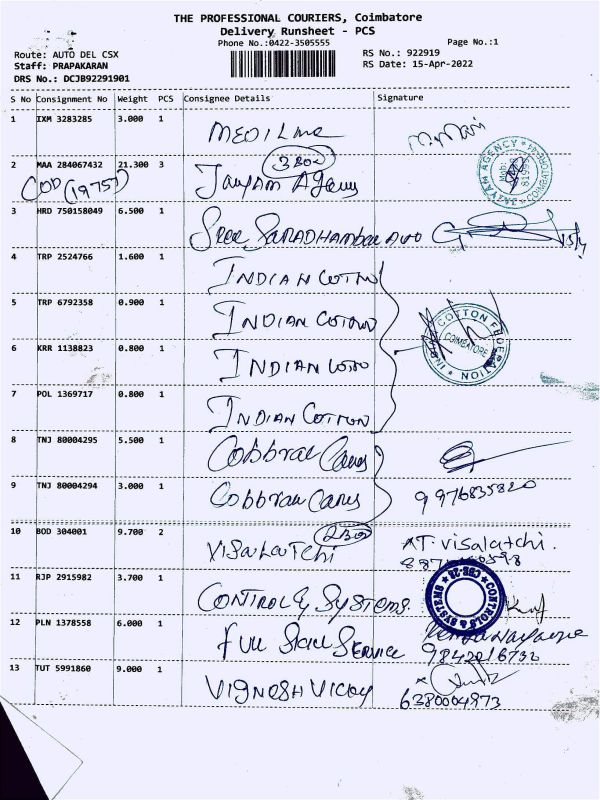 THE PROFESSIONAL COURIERS, Coimbatore
Delivery Runsheet - PCS
Phone No.:0422-3505555
Page No.:1
Route: AUTO DEL CSX
RS No.: 922919
Staff: PRAPAKARAN
RS Date: 15-Apr-2022
DRS No.: DCJB92291901
S No Consignment No Weight PCS Consignee Details Signature
1 IXM 3283285 3.000 1
2 MAA 284067432 21.300 3 3 Box
COD (1975) JAYAM AGENCY
3 HRD 750158049 6.500 1 SREE SARADHAMBAL AUTO
4 TRP 2524766 1.600 1 INDIAN COTTON
5 TRP 6792358 0.900 1 INDIAN COTTON
COTTON FEDERATION
COIMBATORE
6 KRR 1138823 0.800 1 INDIAN
7 POL 1369717 0.800 1 INDIAN COTTON
8 TNJ 80004295 5.500 1
9 TNJ 80004294 3.000 1 9976835820
10 BOD 304001 9.700 2 2 Box
VISALATCHI AT. Visalatchi.
11 RJP 2915982 3.700 1 CONTROL & SYSTEMS.
CONTROLS & SYSTEMS CBE-28
12 PLN 1378558 6.000 1 FULL SKILL SERVICE
9842016732
13 TUT 5991860 9.000 1 VIGNESH VICKY
6380004973